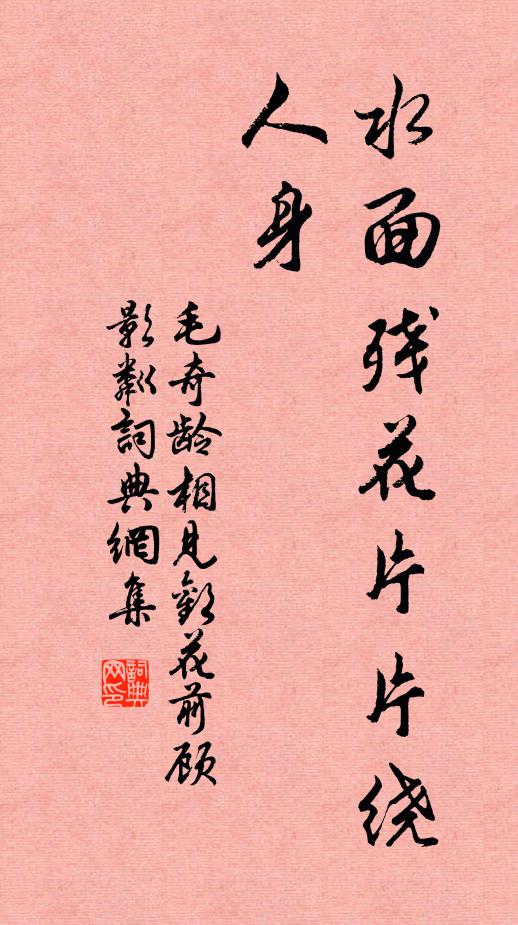 水面残花片片绕
人身
毛奇龄相见歡花前顾
影粼詞典網集
詞典
网印